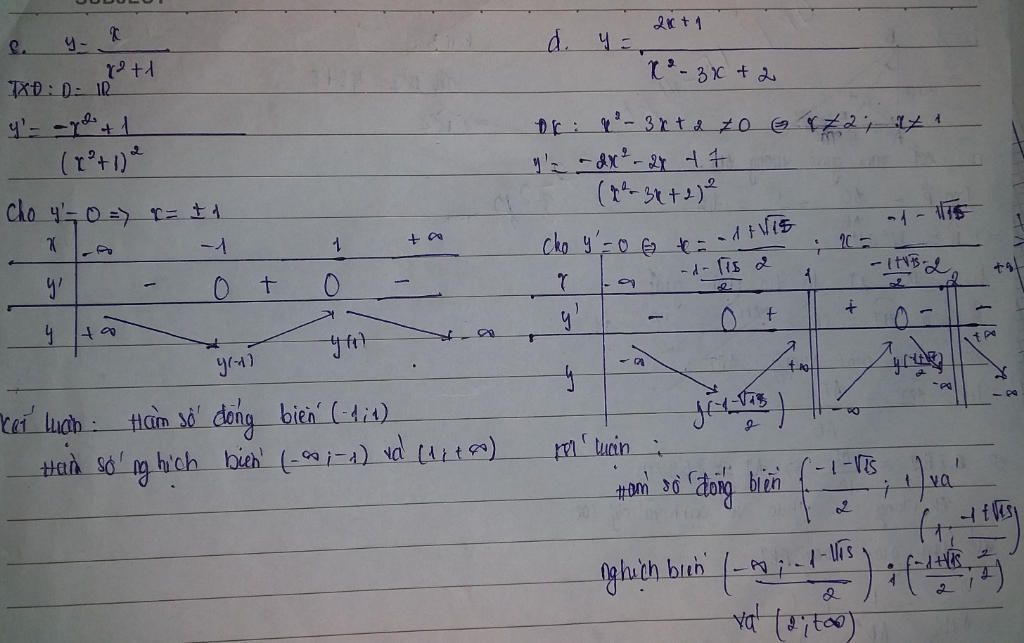 c. y = x / (x² + 1)
TXĐ: D = ℝ
y' = (-x² + 1) / (x² + 1)²
Cho y' = 0 => x = ± 1
x -∞ -1 1 +∞
y' - 0 + 0 -
y +∞ y(-1) y(1) -∞
Kết luận: Hàm số đồng biến (-1;1)
Hàm số nghịch biến (-∞;-1) và (1;+∞)
d. y = (2x + 1) / (x² - 3x + 2)
ĐK: x² - 3x + 2 ≠ 0 ⇔ x ≠ 2; x ≠ 1
y' = (-2x² - 2x + 7) / (x² - 3x + 2)²
Cho y' = 0 ⇔ x = (-1 + √15) / 2 ; x = (-1 - √15) / 2
x -∞ (-1-√15)/2 1 (-1+√15)/2 2 +∞
y' - 0 + + 0 - -
y -∞ y((-1-√15)/2) +∞ -∞ y((-1+√15)/2) -∞ +∞ -∞
Kết luận:
Hàm số đồng biến ((-1-√15)/2 ; 1) và
(1; (-1+√15)/2)
nghịch biến (-∞; (-1-√15)/2) ; ((-1+√15)/2; 2)
và (2;+∞)